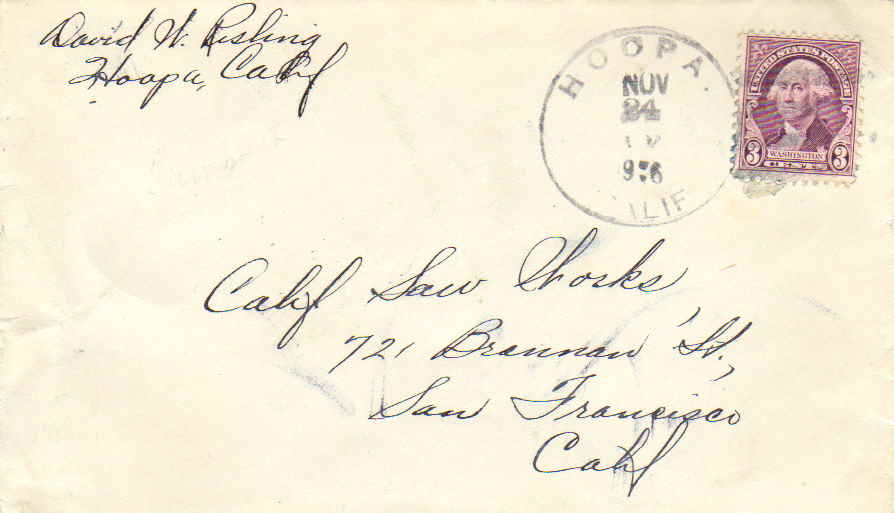 David W. Risling
Hoopa, Calif
HOOPA
NOV
24
ALIF
UNITED STATES POSTAGE
3 WASHINGTON 3
CENTS
Calif Saw Works
721 Brannan St.,
San Francisco
Calif